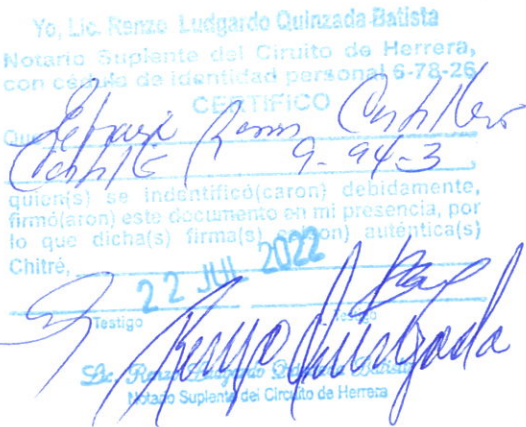 Yo, Lic. Renzo Ludgardo Quinzada Batista
Notario Suplente del Ciruito de Herrera,
con cédula de identidad personal 6-78-26
CERTIFICO
Que
9-94-3
quien(s) se indentificó(caron) debidamente,
firmó(aron) este documento en mi presencia, por
lo que dicha(s) firma(s) son) auténtica(s)
Chitré,
22 JUL 2022
Testigo
Renzo Quinzada
Lic. Renzo Ludgardo Quinzada Batista
Notario Suplente del Circuito de Herrera